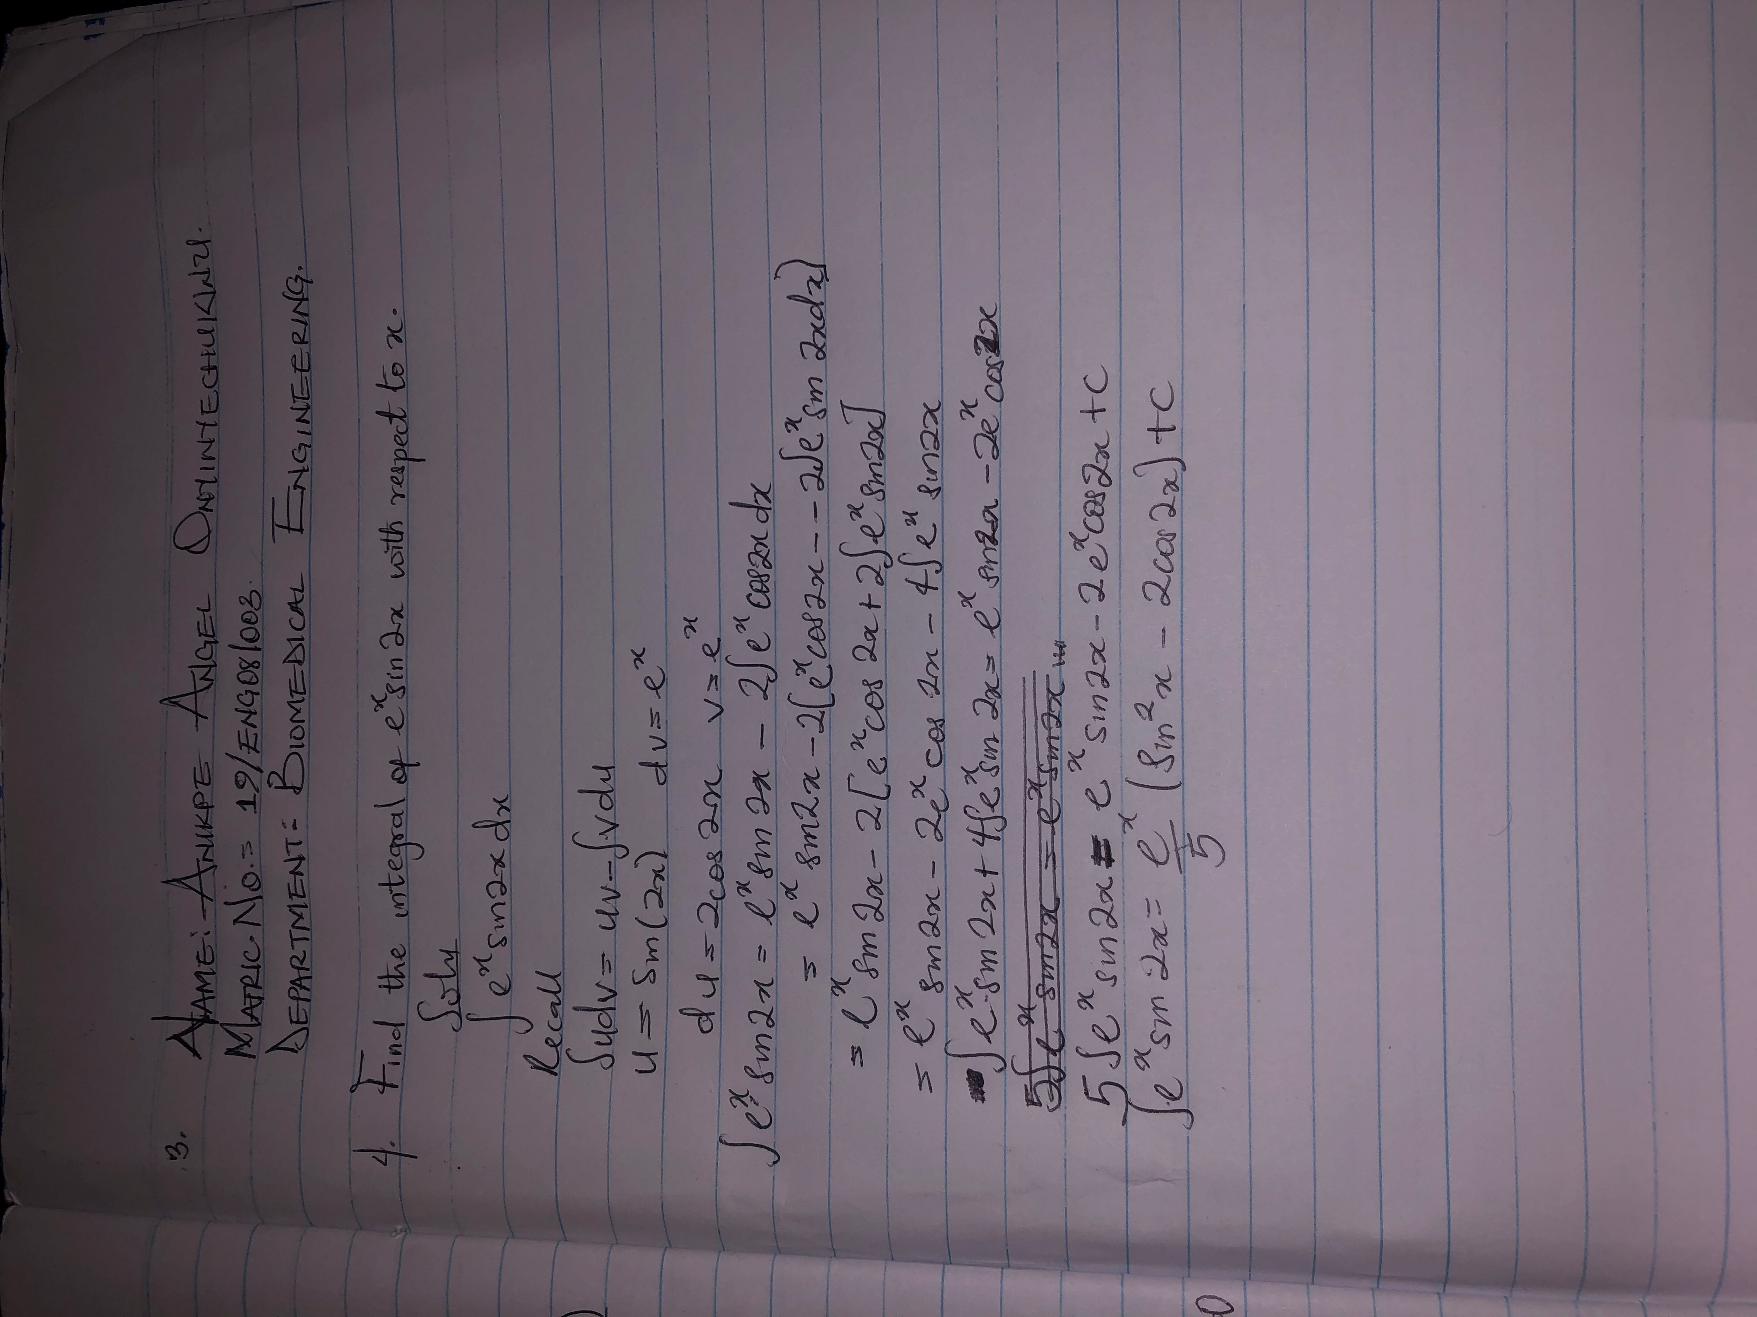 3.
NAME:- ANIKPE ANGEL ONYINYECHUKWU.
MATRIC NO:= 19/ENG08/003.
DEPARTMENT:- BIOMEDICAL ENGINEERING.
4. Find the integral of e^x sin 2x with respect to x.
Soln
∫ e^x sin2x dx
Recall
∫udv = uv - ∫vdu
u = sin(2x) dv = e^x
du = 2cos 2x v = e^x
∫e^x sin2x = e^x sin 2x - 2∫e^x cos2x dx
= e^x sin2x - 2[e^x cos2x - - 2∫e^x sin 2xdx]
= e^x sin 2x - 2[e^x cos 2x + 2∫e^x sin2x]
= e^x sin2x - 2e^x cos 2x - 4∫e^x sin2x
∫e^x sin 2x + 4∫e^x sin 2x = e^x sin2x - 2e^x cos2x
5∫e^x sin2x = e^x sin2x
5∫e^x sin2x = e^x sin2x - 2e^x cos2x + C
∫e^x sin 2x = e^x/5 [sin^2 x - 2cos 2x] + C